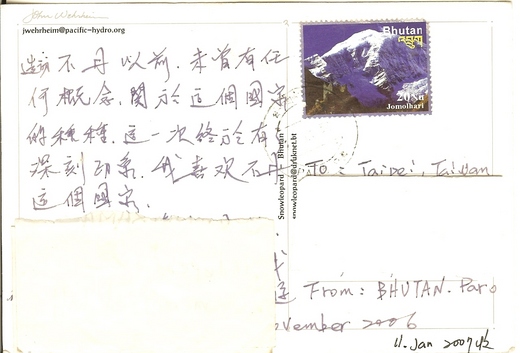 John Wehrheim
jwehrheim@pacific-hydro.org
不丹以前, 未曾有任
何概念, 關於這個國家
的種種, 這一次終於有
深刻印象, 我喜歡不丹
這個國家.
Bhutan
20Nu
Jomolhari
Snowleopard
Bhutan
snowleopard@druknet.bt
To: Taipei, Taiwan
From: BHUTAN. Paro
November 2006
11. Jan 2007